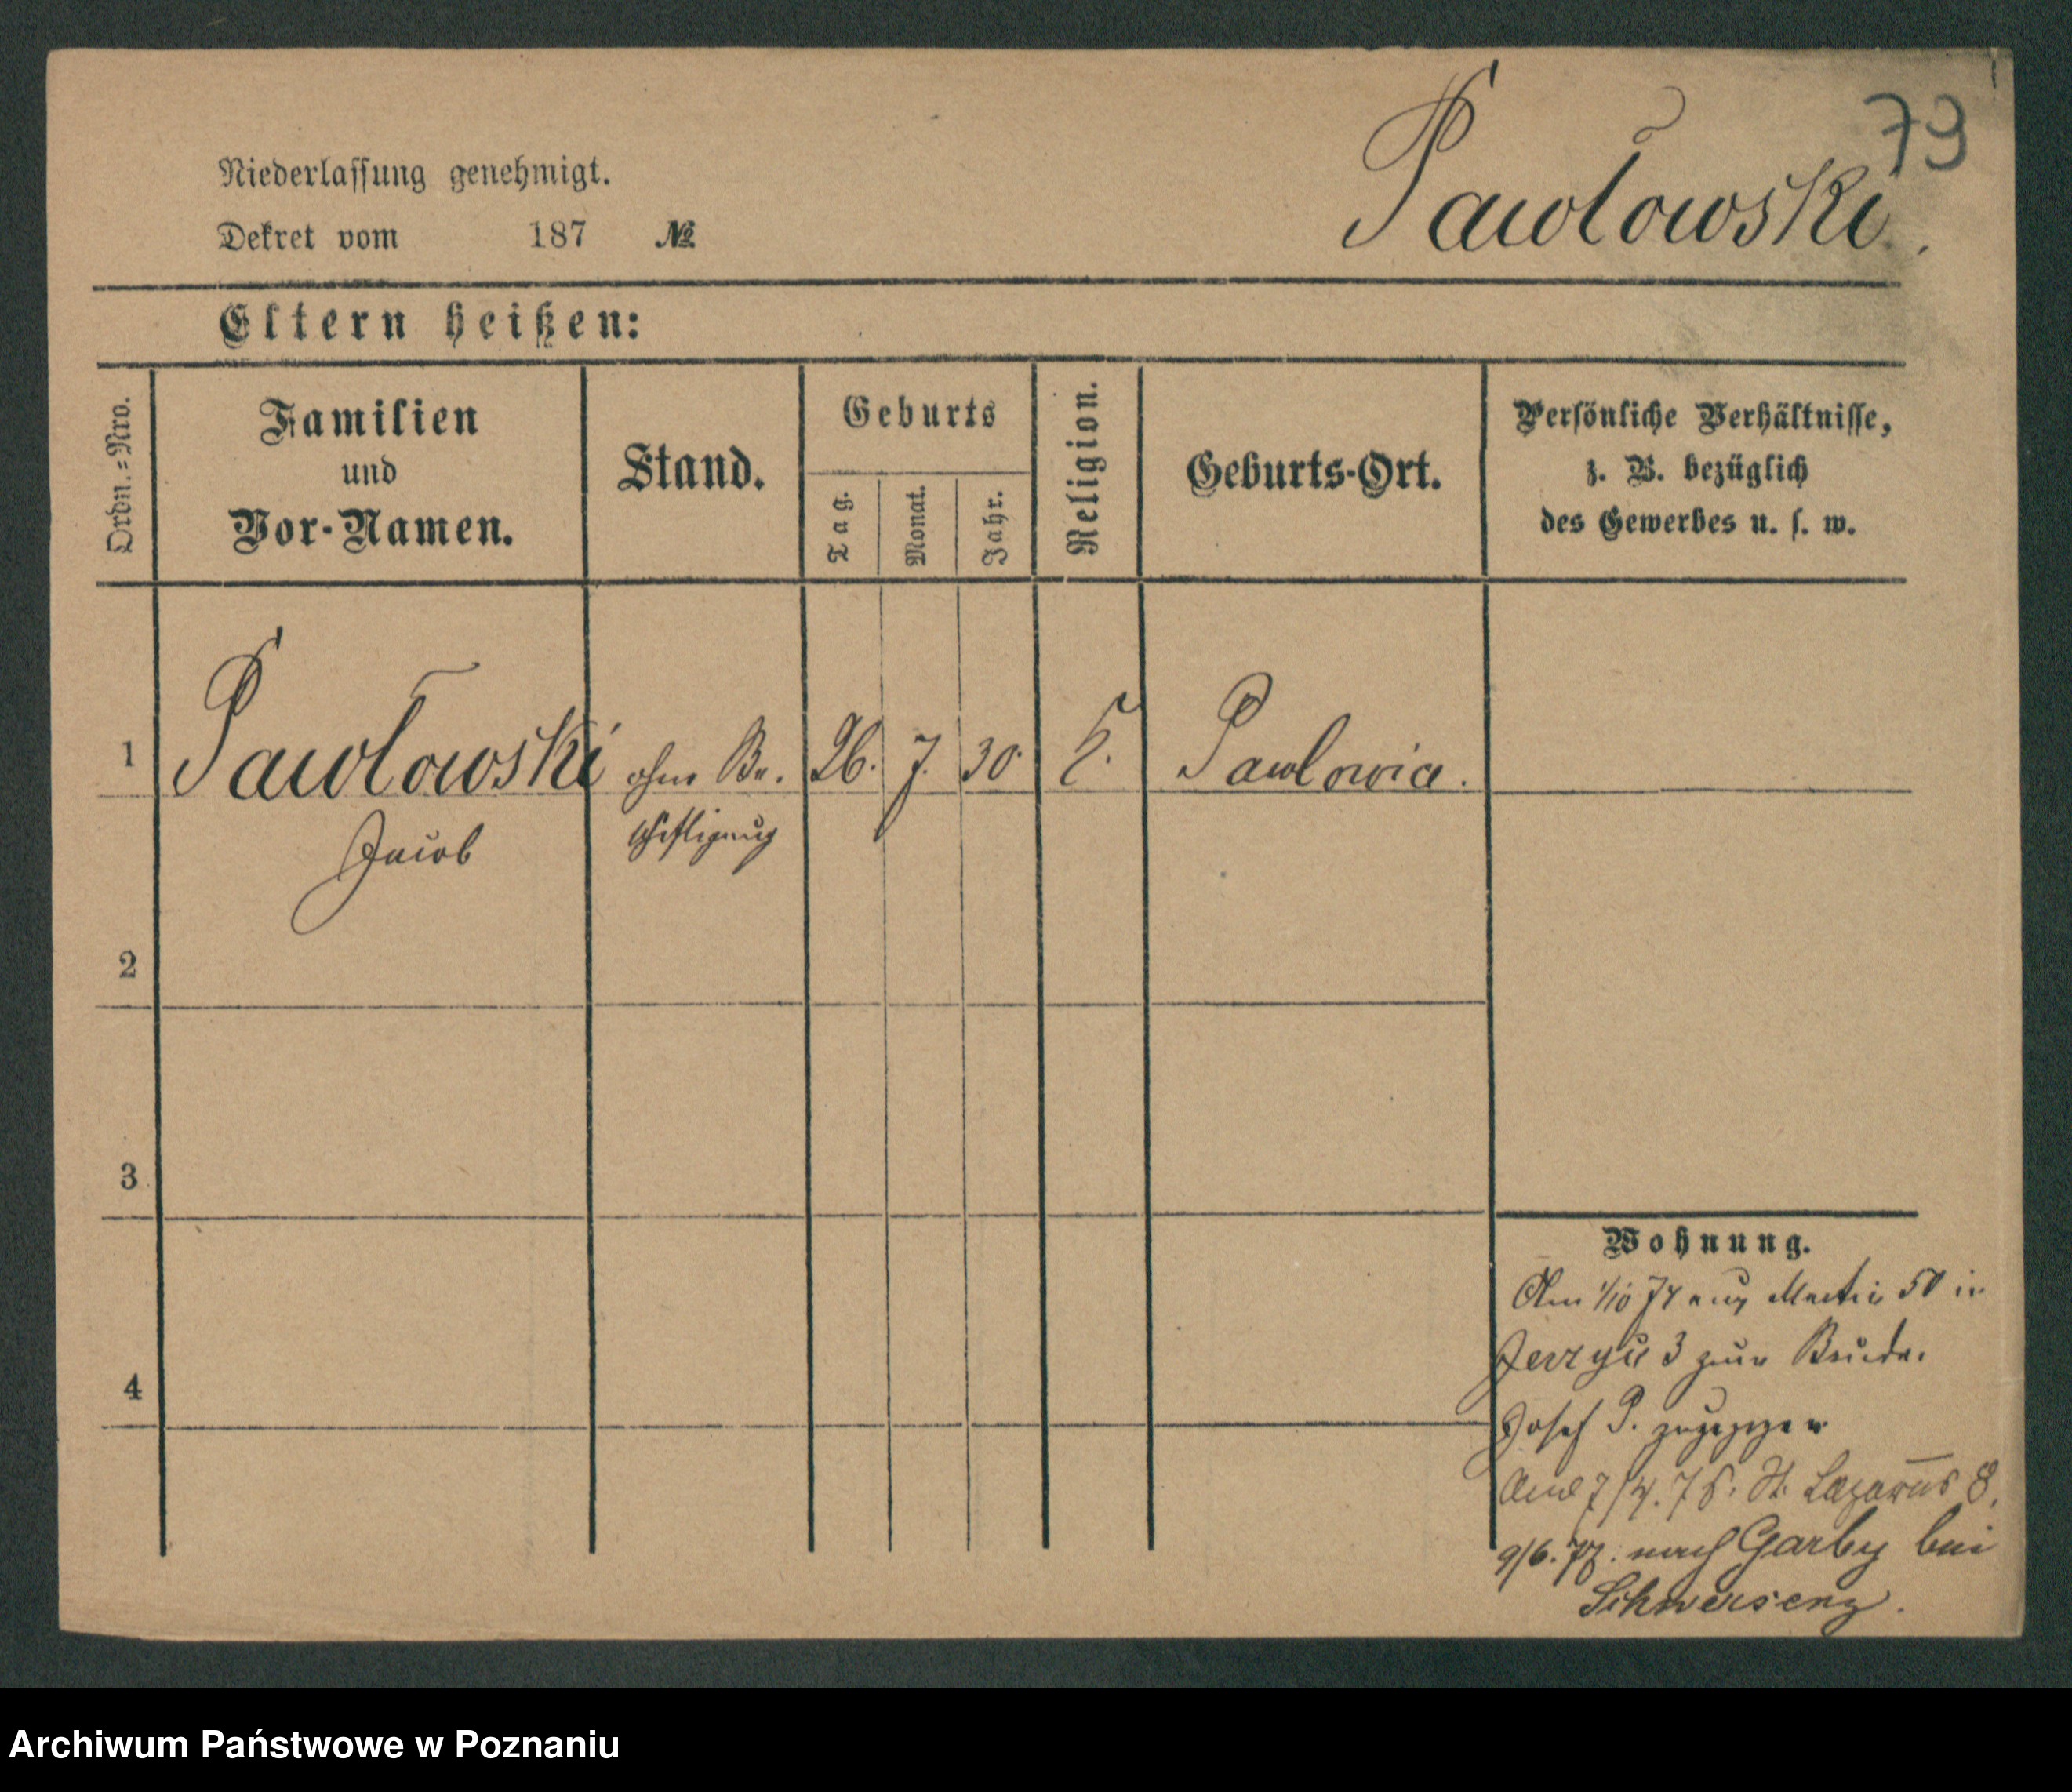 79
Pawłowski.
Niederlassung genehmigt.
Dekret vom 187 №
Eltern heißen:
Ordn.=Nro.
Familien
und
Vor-Namen.
Stand.
Geburts
Tag.
Monat.
Jahr.
Religion.
Geburts-Ort.
Persönliche Verhältnisse,
z. B. bezüglich
des Gewerbes u. s. w.
1 Pawłowski ohne Be. 26. 7. 30. k. Pawlowice.
Jacob schäftigung
2
3
4
Wohnung.
Am 1/10 74 aus 50 in
3 zum Bruder
Josef P. zugezogen
7/4. 75. St. Lazarus 8.
9/6. nach Garby bei
Schwersenz.
Archiwum Państwowe w Poznaniu